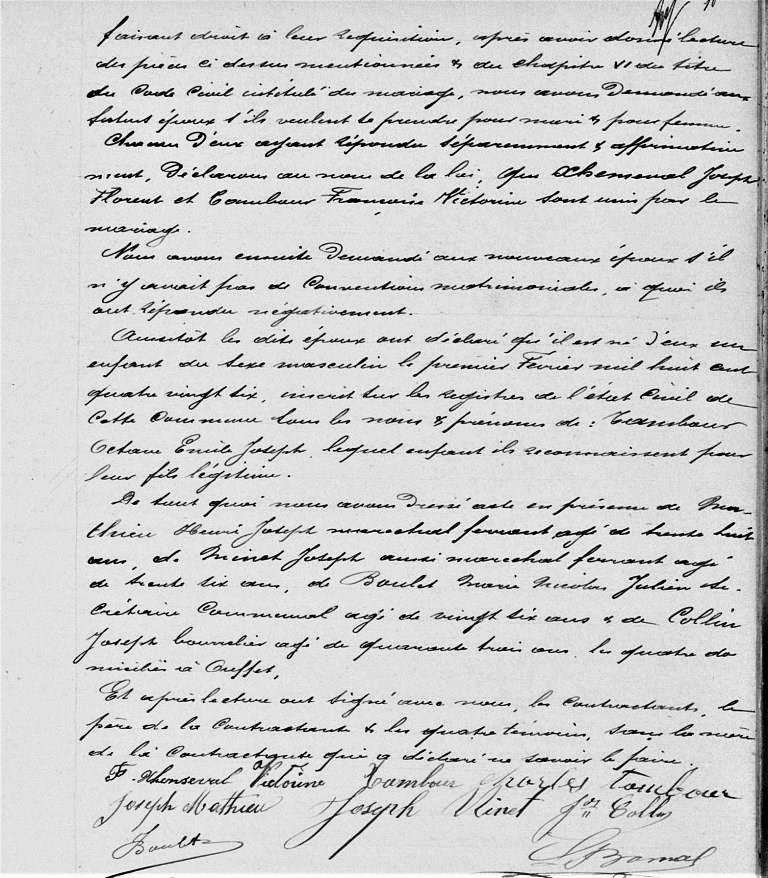 faisant droit à leur requisition, après avoir donné lecture
des pièces ci dessus mentionnées & du chapitre VI du titre
du Code Civil intitulé du mariage, nous avons demandé aux
futurs époux s'ils veulent se prendre pour mari & pour femme.
Chacun d'eux ayant répondu séparemment & affirmative
ment, Déclarons au nom de la loi, que Xhenseval Joseph
Florent et Tambour Françoise Victorine sont unis par le
mariage.
Nous avons ensuite demandé aux nouveaux époux s'il
n'y avait pas de Conventions matrimoniales, à quoi ils
ont répondu négativement.
Aussitôt les dits époux ont déclaré qu'il est né d'eux un
enfant du sexe masculin le premier Février mil huit cent
quatre vingt six, inscrit sur les registres de l'état Civil de
cette Commune sous les noms & prénoms de : Tambour
Octave Emile Joseph, lequel enfant ils reconnaissent pour
leur fils légitime.
De tout quoi nous avons dressé acte en présence de Ma-
thieu Henri Joseph marechal ferrant agé de trente huit
ans, de Ninet Joseph aussi marechal ferrant agé
de trente six ans, de Boulet Marie Nicolas Julien Se-
crétaire Communal agé de vingt six ans & de Collin
Joseph bourrelier agé de quarante trois ans, les quatre do
miciliés à Ouffet,
Et après lecture ont signé avec nous, les contractants, le
père de la contractante & les quatre témoins, sauf la mère
de la contractante qui a déclaré ne savoir le faire.
F. Xhenseval Victorine Tambour Charles Tambour
Joseph Mathieu Joseph Ninet Jos Collin
Boulet